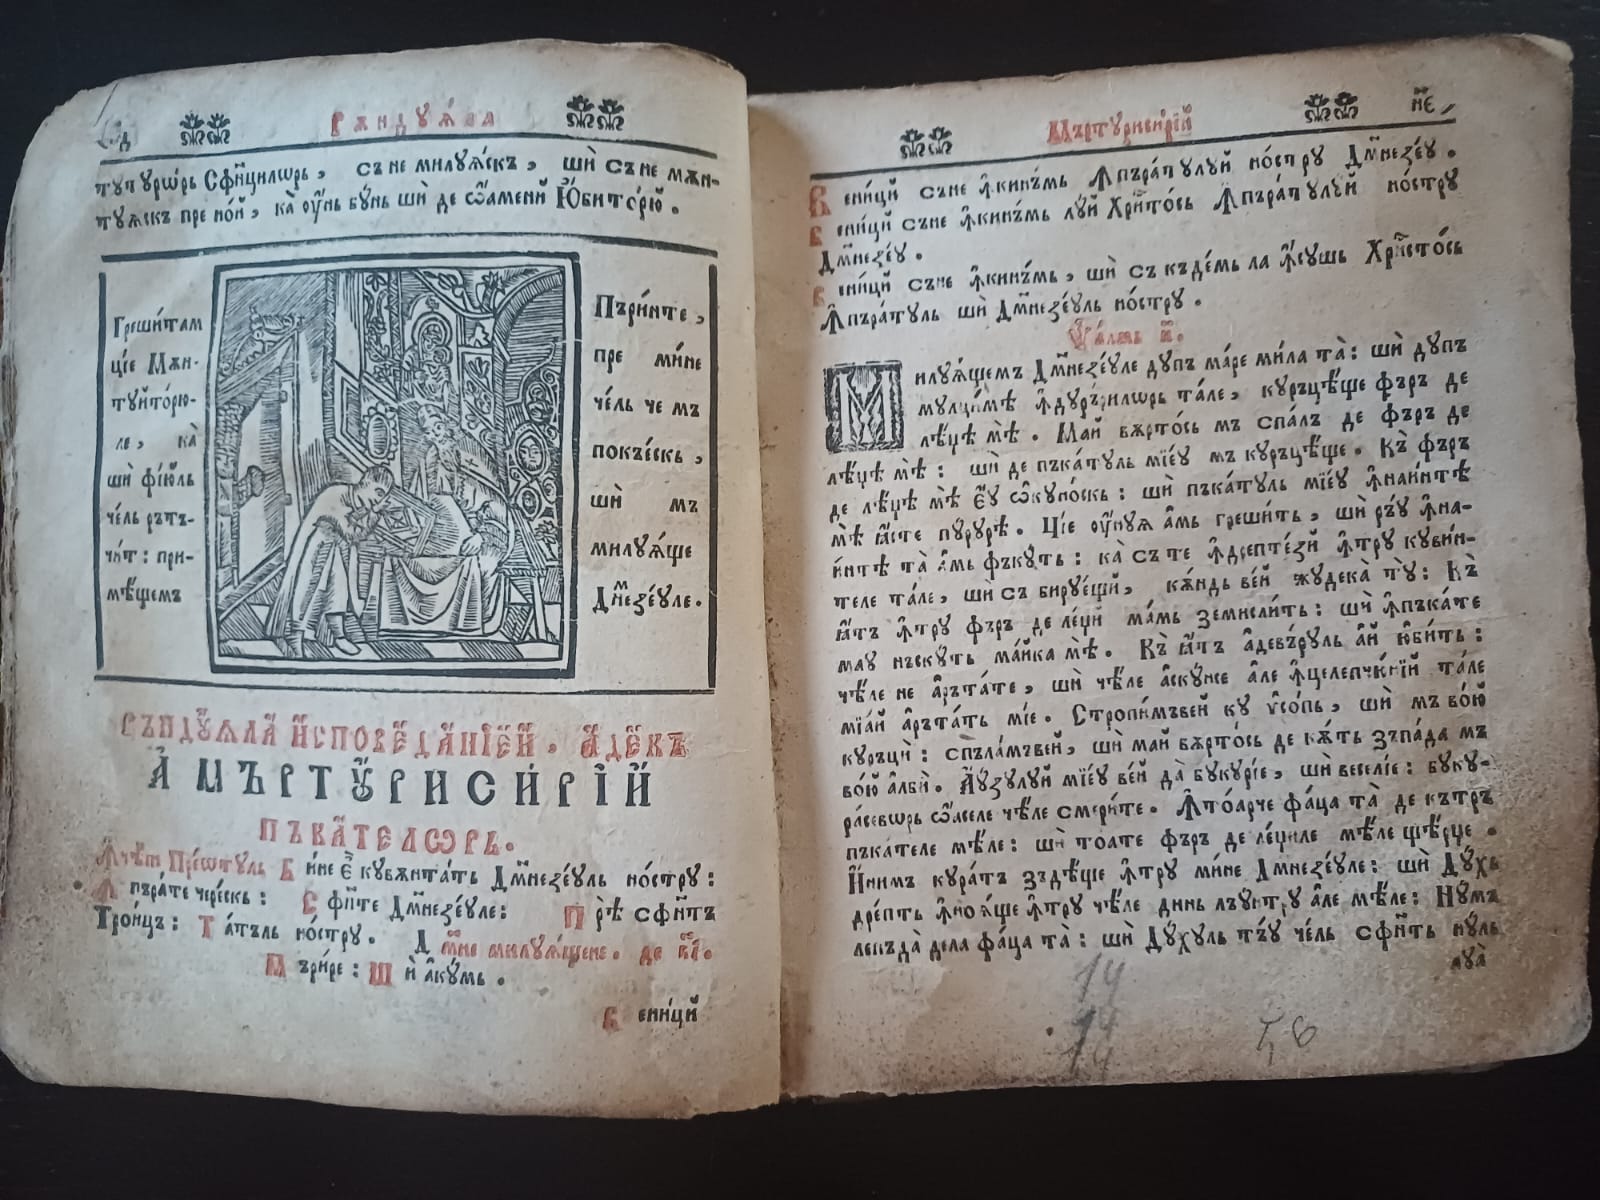 Рѫндуѧла
тутурѡрь Сфⷩ҇цилѡрь, съ не милуѧскъ, шѝ съ не мѫн-
туѧскъ пре но́й, ка̀ ѹ҆́нь бу́нь шѝ де ѡ҆а́мени Ю҆бито́рю.
Греши́там
ці́е Мѫн-
туйто́рю-
ле, ка̀
шѝ фїю́ль
че́ль рътъ-
чи́т: при-
мѣ́щемъ
Пъри́нте,
пре ми́не
че́ль че мъ
покъе́скь,
шѝ мъ
милуѧ́ще
Дⷨ҇незе́уле.
Ръндуѧ́ла и҆сповѣ́данїей. А҆де́къ
А҆ МЪРТУРИСИ́РІЙ
пъка́телѡрь.
Ѫ҆чѣ́пе Прео́туль Би́не є҆ кувѫнта́ть Дⷨ҇незе́уль но́стру:
Ѫ҆пъра́те чере́скь: Сфи́нте Дⷨ҇незе́уле: Прѣ́ сфи́нтъ
Трои́цъ: Та́тъль но́стру. Дⷨ҇не милуѧ́щене. де в҃і.
Мъри́ре: Шѝ а҆ку́мь.
Вени́ций
Мъртурисирїй
н҃е
Вени́ций съне ѫ҆кинъ́мь Ѫ҆пъра́тулуй но́стру Дⷨ҇незе́у.
Вени́ций съне ѫ҆кинъ́мь лу́й Хрⷭ҇то́сь Ѫ҆пъра́тулуй но́стру
Дⷨ҇незе́у.
Вени́ций съне ѫ҆кинъ́мь, шѝ съ къде́мь ла І҆и҆су́шь Хрⷭ҇то́сь
Ѫ҆пъра́туль шѝ Дⷨ҇незе́уль но́стру.
Ѱало́мь н҃.
Милуѧ́щемъ Дⷨ҇незе́уле ду́пъ ма́ре ми́ла та̀: шѝ ду́пъ
мулци́мѣ ѫ҆дуръ́рилѡрь та́ле, куръцѣ́ще фъръ де
лѣ́џѣ мѣ̀. Май вѫрто́сь мъ спа́лъ де фъръ де
лѣ́џѣ мѣ̀: шѝ де пъка́туль мїе́у мъ куръцѣ́ще. Къ̀ фъръ
де лѣ́џѣ мѣ̀ є҆́у ѡ҆куно́скь: шѝ пъка́туль мїе́у ѫ҆наи́нтѣ
мѣ̀ ꙗ҆́сте пуру́рѣ. Ці́е ѹ҆́нуѧ а҆́мь греши́ть, шѝ ръ́у ѫ҆на-
и́нтѣ та̀ а҆́мь фъку́ть: ка̀ съ те ѫ҆дсепте́зй ѫ҆тру куви́н-
теле та́ле, шѝ съ бируе́щй, кѫ́ндь ве́й жудека̀ тꙋ̀: Къ̀
ꙗ҆́тъ ѫ҆тру фъръ де ле́џй ма́мь земисли́ть: шѝ ѫ҆пъка́те
мау нъску́ть ма́йка мѣ̀. Къ̀ ꙗ҆́тъ а҆девъ́руль а҆́й ю҆би́ть:
че́ле не а҆ръта́те, шѝ че́ле а҆ску́нсе а҆́ле ѫ҆целепчи́нїй та́ле
мїа́й а҆ръта́ть мі́е. Стропи́мъвей ку ѵ҆со́пь, шѝ мъ во́ю
куръцѝ: спъла́мъвей, шѝ май вѫрто́сь де кѫ́ть зъпа́да мъ
во́ю а҆лбѝ. А҆у́зулуй мїе́у ве́й да̀ букурі́е, шѝ веселі́е: буку-
ра́севорь ѡ҆а́селе че́ле смери́те. Ѫ҆тоа́рче фа́ца та̀ де ка́тръ
пъка́теле мѣ́ле: шѝ тоа́те фъръ де ле́џиле мѣ́ле щѣ́рџе.
И҆́нимъ кура́тъ зъдѣ́ще ѫ҆тру ми́не Дⷨ҇незе́уле: шѝ Ду́хь
дре́пть ѫ҆ноѧ́ще ѫ҆тру че́ле динь лъу́нтру а҆́ле мѣ́ле: Ну́мъ
лепъда̀ дела фа́ца та̀: шѝ Ду́хуль тъ́у че́ль сфи́нть ну́ль
луа̀
14
14
14